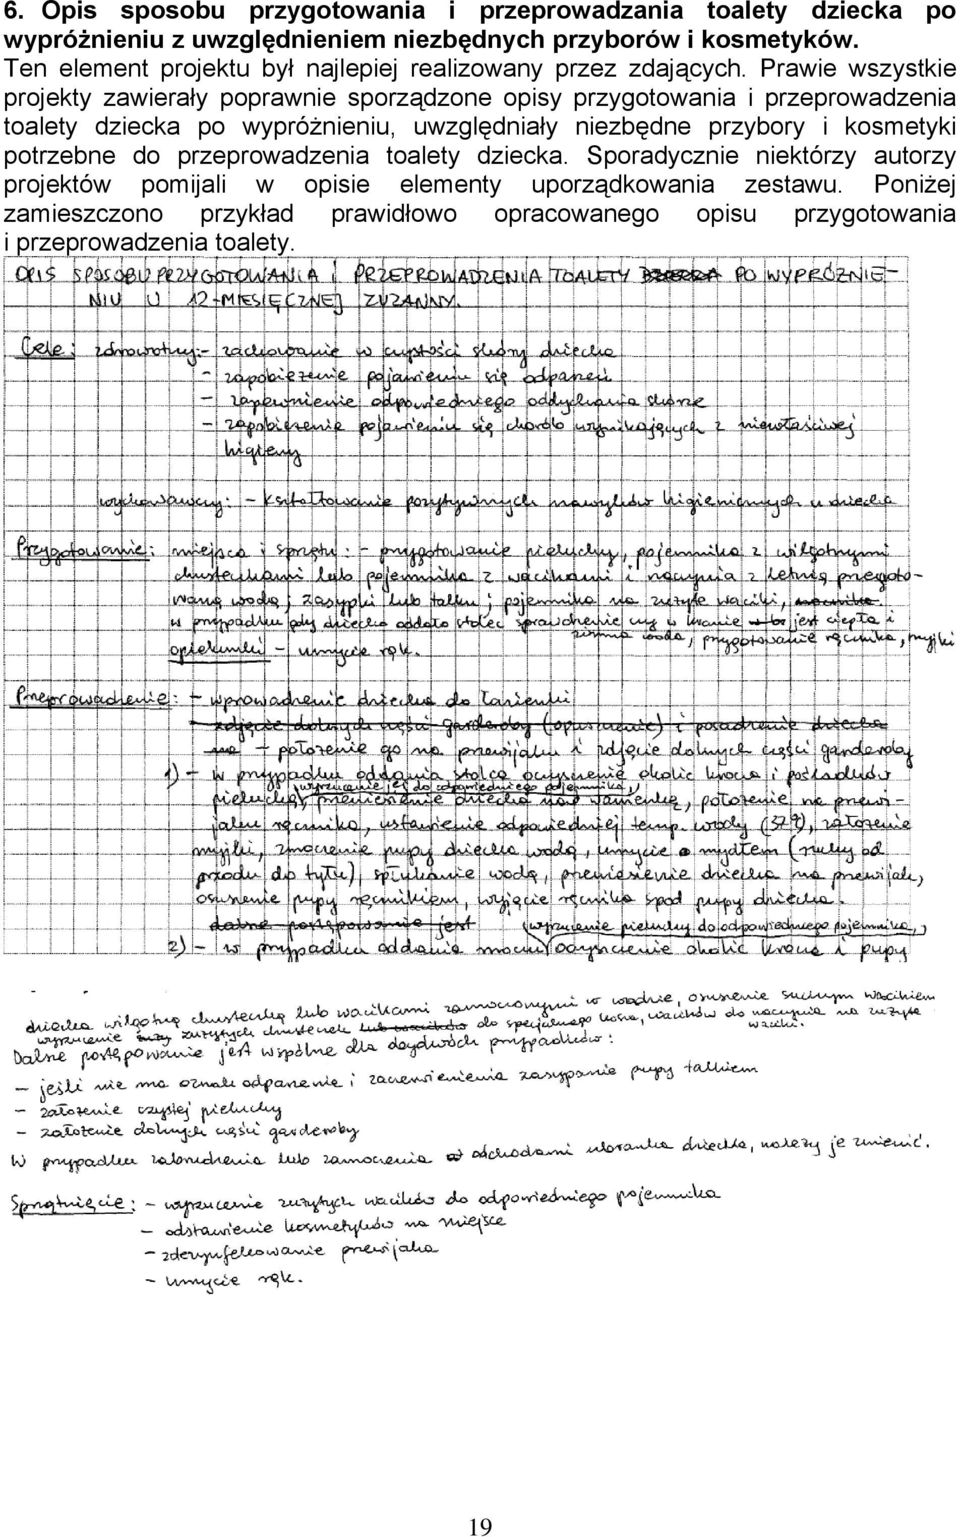 6. Opis sposobu przygotowania i przeprowadzania toalety dziecka po
wypróżnieniu z uwzględnieniem niezbędnych przyborów i kosmetyków.
Ten element projektu był najlepiej realizowany przez zdających. Prawie wszystkie
projekty zawierały poprawnie sporządzone opisy przygotowania i przeprowadzenia
toalety dziecka po wypróżnieniu, uwzględniały niezbędne przybory i kosmetyki
potrzebne do przeprowadzenia toalety dziecka. Sporadycznie niektórzy autorzy
projektów pomijali w opisie elementy uporządkowania zestawu. Poniżej
zamieszczono przykład prawidłowo opracowanego opisu przygotowania
i przeprowadzenia toalety.
OPIS SPOSOBU PRZYGOTOWANIA I PRZEPROWADZENIA TOALETY DZIECKA PO WYPRÓŻNIE-
NIU U 12-MIESIĘCZNEJ ZUZANNY.
Cele: zdrowotny: - zachowanie w czystości skóry dziecka
- zapobieżenie pojawieniu się odparzeń
- zapewnienie odpowiedniego oddychania skórze
- zapobieżenie pojawieniu się chorób wynikających z niewłaściwej
higieny
wychowawczy: - kształtowanie pozytywnych nawyków higienicznych u dziecka
Przygotowanie: miejsca i sprzętu: - przygotowanie pieluchy, pojemnika z wilgotnymi
chusteczkami lub pojemnika z wacikami i naczynia z letnią przegoto-
waną wodą; zasypki lub talku; pojemnika na zużyte waciki,
w przypadku gdy dziecko oddało stolec sprawdzenie czy w kranie jest ciepła i
zimna woda, przygotowanie ręcznika, myjki
opiekunki - umycie rąk.
Przeprowadzenie: - wprowadzenie dziecka do łazienki
zdjęcie dolnych części garderoby (opuszczenie) i posadzenie dziecka
na - położenie go na przewijaku i zdjęcie dolnych części garderoby
1) - w przypadku oddania stolca oczyszczenie okolic krocza i pośladków
(wyrzucenie jej do odpowiedniego pojemnika,)
pieluchą, przeniesienie dziecka nad wanienkę, położenie na przewi-
jaku ręcznika, ustawienie odpowiedniej temp. wody (37°), założenie
myjki, zmoczenie pupy dziecka wodą, umycie mydłem (ruchy od
przodu do tyłu), spłukanie wodą, przeniesienie dziecka na przewijak,
osuszenie pupy ręcznikiem, wyjęcie ręcznika spod pupy dziecka.
dalsze postępowanie jest
(wyrzucenie pieluchy do odpowiedniego pojemnika,)
2) - w przypadku oddania moczu oczyszczenie okolic krocza i pupy
dziecka wilgotną chusteczką lub wacikami zamoczonymi w wodzie, osuszenie suchym wacikiem
wyrzucenie zużytych chusteczek do specjalnego kosza, wacików do naczynia na zużyte
waciki.
Dalsze postępowanie jest wspólne dla dwóch przypadków:
- jeśli nie ma oznak odparzenia i zaczerwienienia zasypanie pupy talkiem
- założenie czystej pieluchy
- założenie dolnych części garderoby
W przypadku zabrudzenia lub zamoczenia odchodami ubranka dziecka, należy je zmienić.
Sprzątnięcie: - wyrzucenie zużytych wacików do odpowiedniego pojemnika
- odstawienie kosmetyków na miejsce
- zdezynfekowanie przewijaka
- umycie rąk.
19